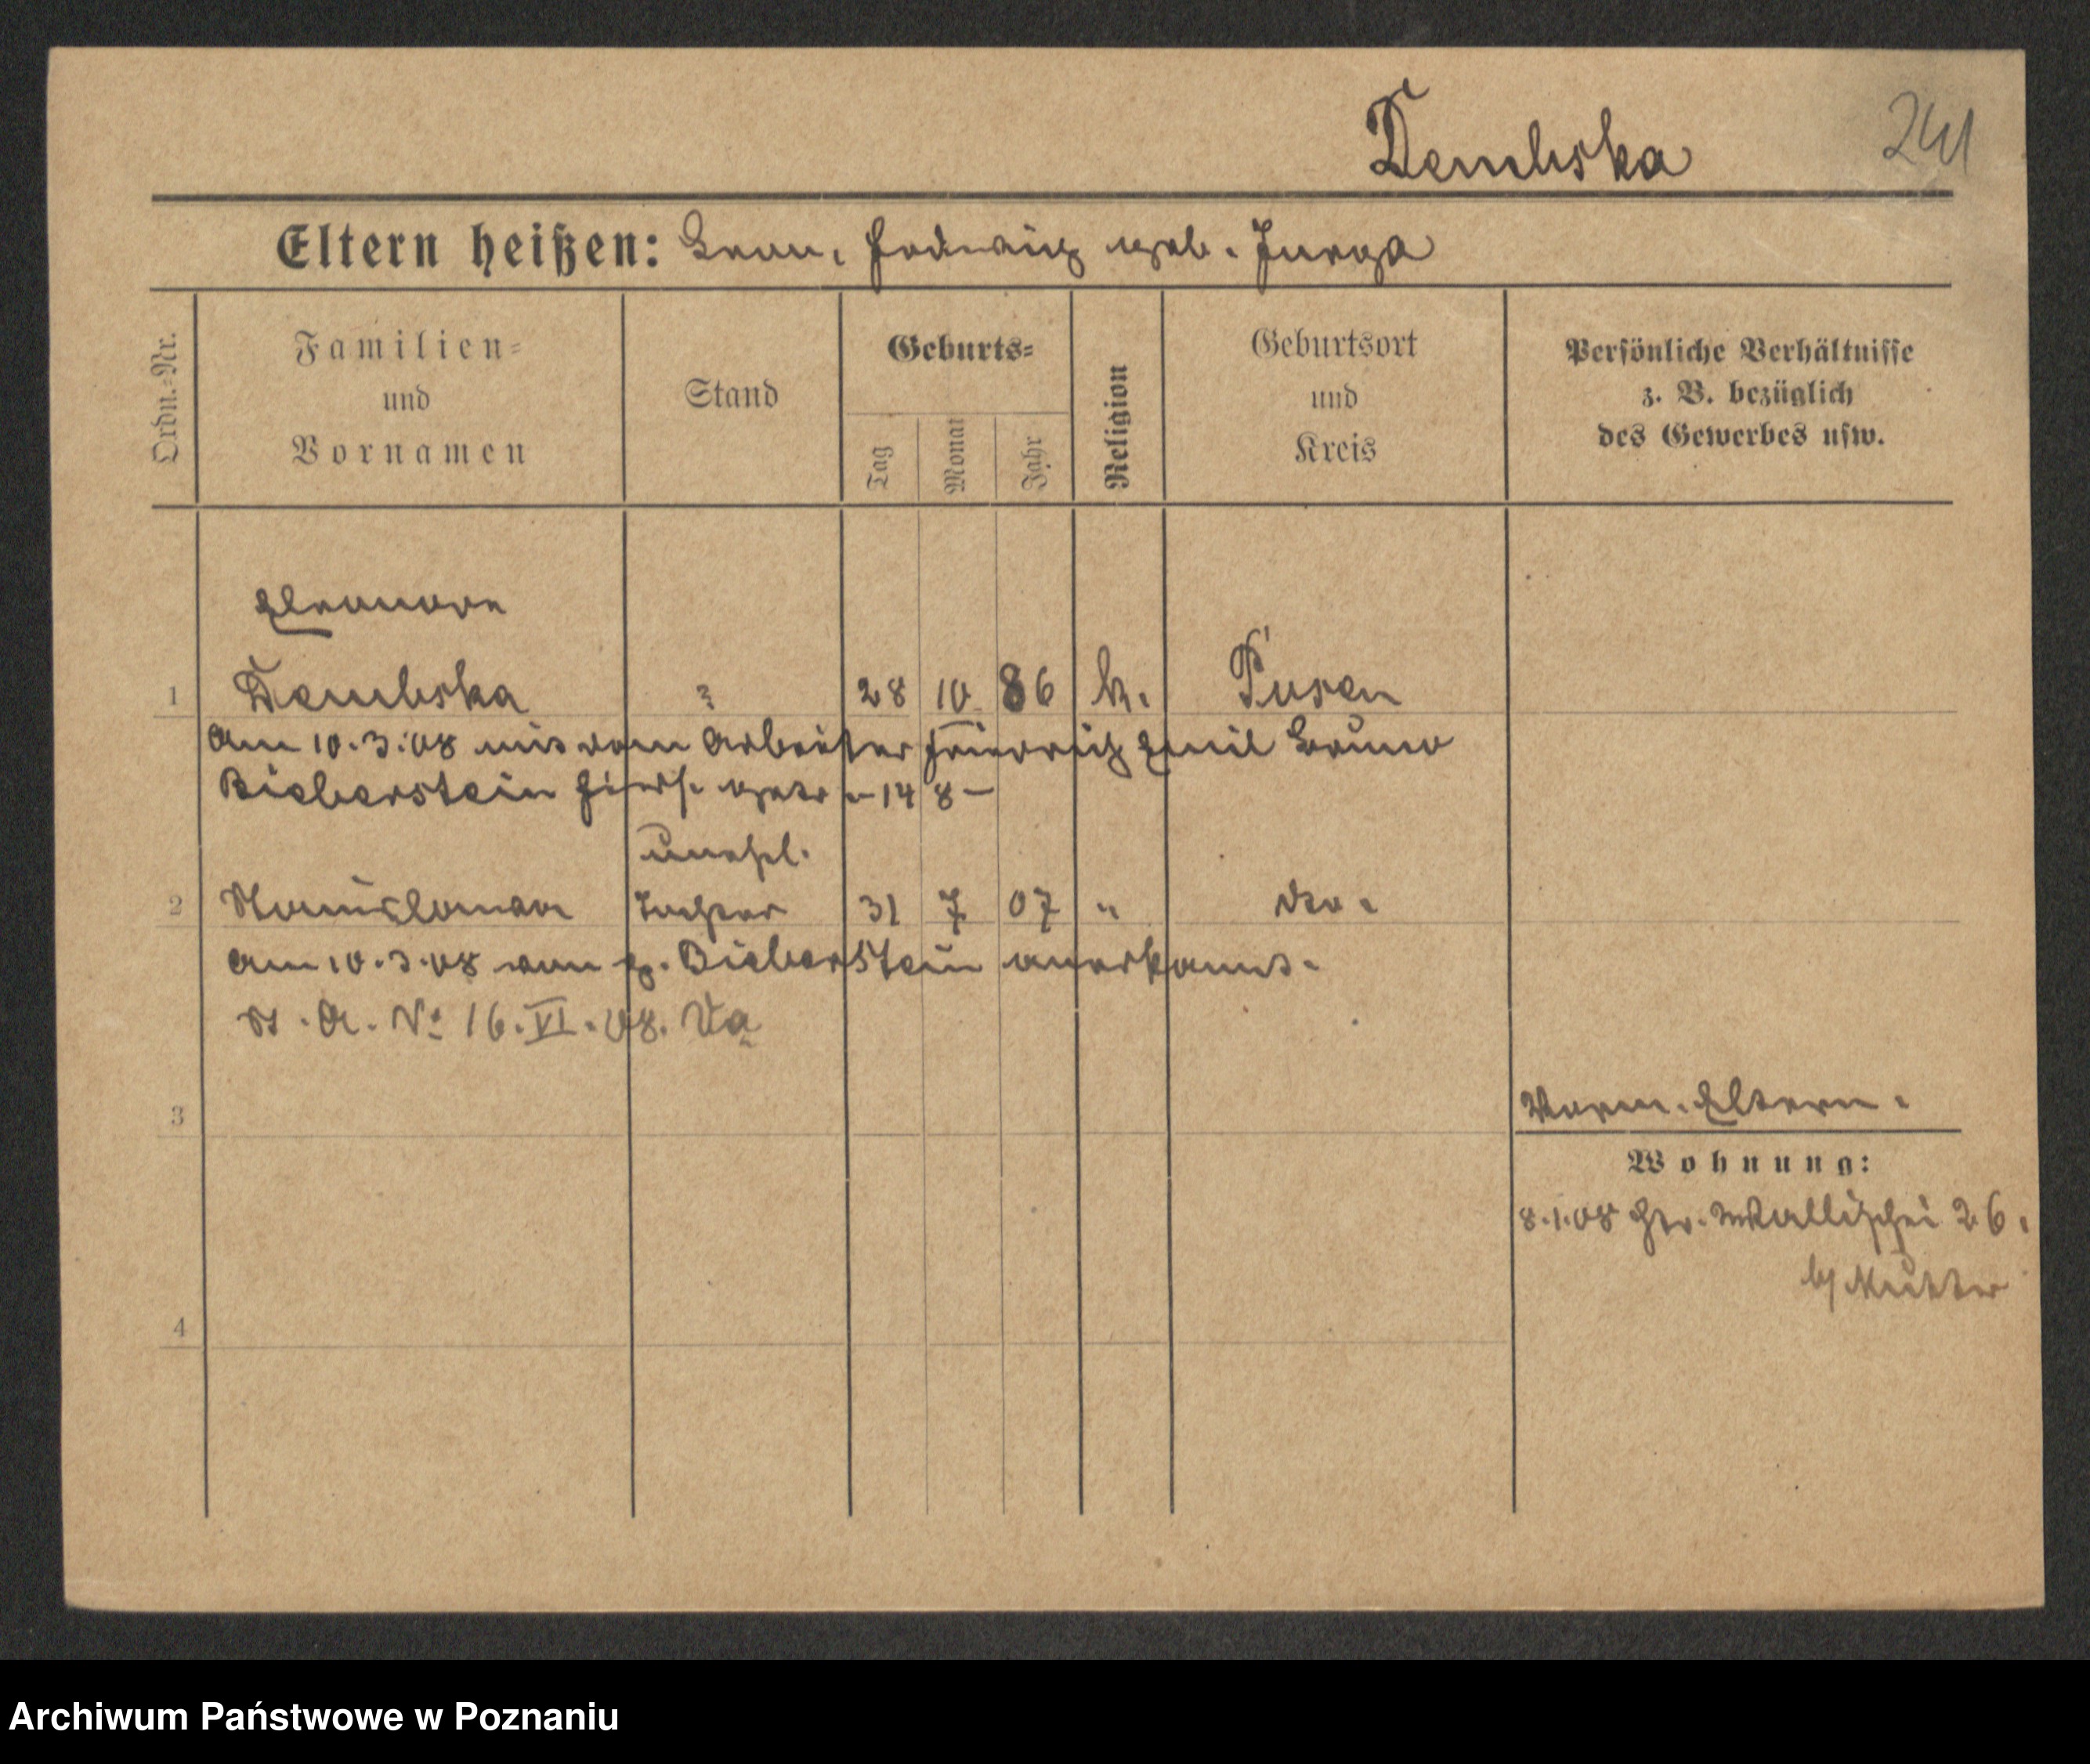 Dembska 241
Eltern heißen: Leon, Hedwig geb. Jurga
Ordn.-Nr.
Familien-
und
Vornamen
Stand
Geburts-
Tag
Monat
Jahr
Religion
Geburtsort
und
Kreis
Persönliche Verhältnisse
z. B. bezüglich
des Gewerbes usw.
Eleonore
1 Dembska 28 10 86 k. Posen
Am 10.3.08 mit dem Arbeiter Friedrich Emil Bruno
Bieberstein hiers. getr - 14 8 -
unehl.
2 Tochter 31 7 07 " dto.
am 10.3.08 von p. Bieberstein anerkannt.
St. A. No 16. VI. 08.
3
Verm. Eltern.
Wohnung:
8.1.08 Gr. Wallischei 26.
b/ Mutter
4
Archiwum Państwowe w Poznaniu